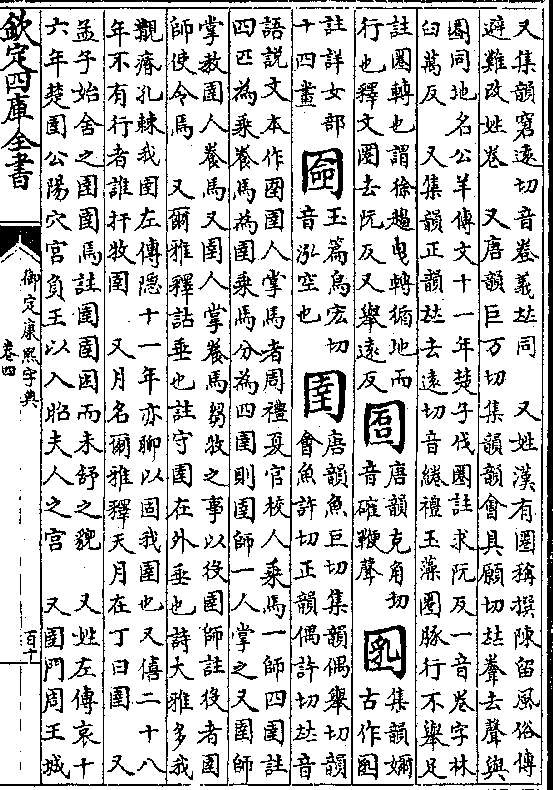 又集韻窘遠切音卷義𠀤同　又姓漢有圈稱撰陳留風俗傳
避難改姓卷　又唐韻巨万切集韻韻會具願切𠀤𦎍去聲與
圈同地名公羊傳文十一年楚子伐圈註求阮反一音卷字林
臼萬反　又集韻正韻𠀤去遠切音綣禮玉藻圈豚行不舉足
註圈轉也謂徐趨曳轉循地而
行也釋文圈去阮反又舉遠反
唐韻克角切
音確鞭聲
集韻嬭
古作
註詳女部
十四畫
玉篇烏宏切
音泓空也
圉
唐韻魚巨切集韻偶舉切韻
會魚許切正韻偶許切𠀤音
語說文本作圉圉人掌馬者周禮夏官校人乘馬一師四圉註
四匹為乘養馬為圉乘馬分為四圉則圉師一人掌之又圉師
掌教圉人養馬又圉人掌養馬芻牧之事以役圉師註役者圉
師使令焉　又爾雅釋詁垂也註守圉在外垂也詩大雅多我
覯瘠孔棘我圉左傳隱十一年亦聊以固我圉也又僖二十八
年不有行者誰扞牧圉　又月名爾雅釋天月在丁曰圉　又
孟子始舍之圉圉焉註圉圉困而未舒之貌　又姓左傳哀十
六年楚圉公陽穴宮負王以入昭夫人之宮　又圉門周王城
欽定四庫全書
御定康熙字典
卷四
百十